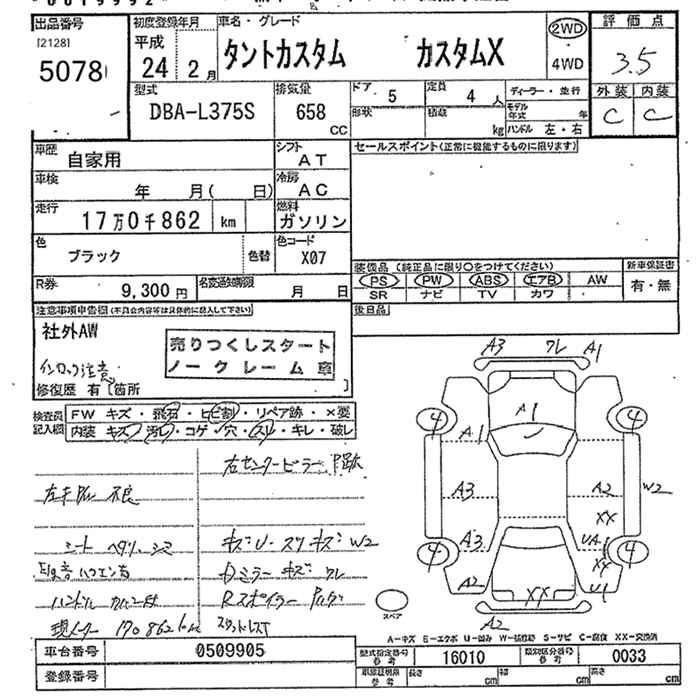 出品番号
[2128]
5078
初度登録年月
平成
24 2月
車名・グレード
タントカスタム カスタムX
2WD
4WD
評価点
3.5
外装 内装
C C
型式
DBA-L375S
排気量
658
CC
ドア
5
定員
4人
形状
積載
kg
ディーラー・並行
モデル年式 年
ハンドル 左・右
車歴
自家用
シフト
AT
セールスポイント(正常に機能するものに限ります)
車検
年 月( 日)
冷房
AC
走行
17万0千862 km
燃料
ガソリン
色
ブラック
色替
色コード
X07
R券
9,300円
名変通知期限
月 日
装備品(純正品に限り○をつけてください)
PS PW ABS エアB AW
SR ナビ TV カワ
新車保証書
有・無
後日品
注意事項申告欄(不具合内容等は具体的に記入して下さい)
社外AW
売りつくしスタート
ノークレーム車
インロック注意
修復歴 有 [箇所
検査員記入欄
FW キズ・飛石・ヒビ割・リペア跡・×要
内装 キズ・汚レ・コゲ・穴・スレ・キレ・破レ
右センターピラー
不良
シート ヘタリ・シミ
キズU・スリキズ W2
Dミラー キズ ワレ
Rスポイラー
現メーター 170862km
A3 ワレ A1
4 A1 4
A1
A3 A2 W2
XX
A3 UA1
XX
4 4
A2 XX U1
A2
スペア
A-キズ E-エクボ U-凹み W-補修跡 S-サビ C-腐食 XX-交換済
車台番号
0509905
型式指定番号
参考
16010
類別区分番号
参考
0033
登録番号
車庫証明用
参考
長さ cm
幅 cm
高さ cm